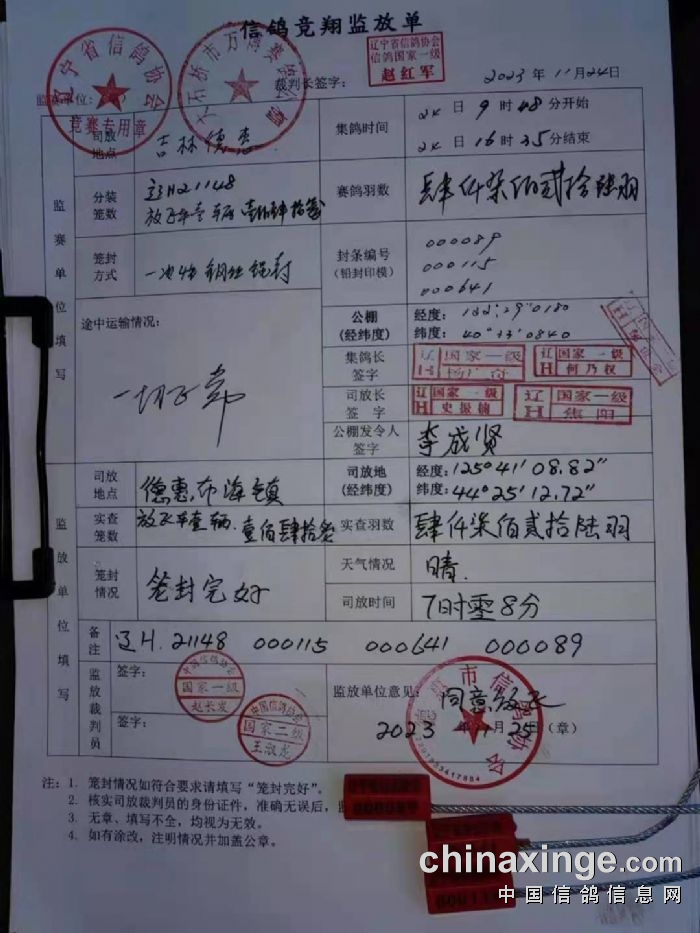 信鸽竞翔监放单
辽宁省信鸽协会
信鸽国家一级
赵红军
裁判长签字:
2023年11月24日
辽宁省信鸽协会
竞赛专用章
监赛单位填写
司放地点
吉林德惠
集鸽时间
24日9时48分开始
24日16时35分结束
分装笼数
辽H21148
放飞车壹辆
赛鸽羽数
肆仟柒佰贰拾陆羽
笼封方式
封条编号
(铅封印模)
000089
000115
000641
途中运输情况:
一切正常
公棚
(经纬度)
经度:
纬度:
集鸽长签字
辽H 国家一级
辽H 国家一级 何乃权
司放长签字
辽H 国家一级 史振楠
辽H 国家一级 焦阳
公棚发令人签字
李成贤
监放单位填写
司放地点
德惠布海镇
司放地
(经纬度)
经度:125°41′08.82″
纬度:44°25′12.72″
实查笼数
放飞车壹辆.
实查羽数
肆仟柒佰贰拾陆羽
笼封情况
笼封完好
天气情况
晴
司放时间
7时零8分
备注
辽H.21148 000115 000641 000089
监放裁判员
签字:
中国信鸽协会
国家一级
赵长发
签字:
中国信鸽协会
国家二级
王淑龙
监放单位意见:
同意放飞
2023年11月25日(章)
注:1. 笼封情况如符合要求请填写“笼封完好”。
2. 核实司放裁判员的身份证件,准确无误后,
3. 无章、填写不全,均视为无效。
4. 如有涂改,注明情况并加盖公章。
chinaxinge.com
中国信鸽信息网